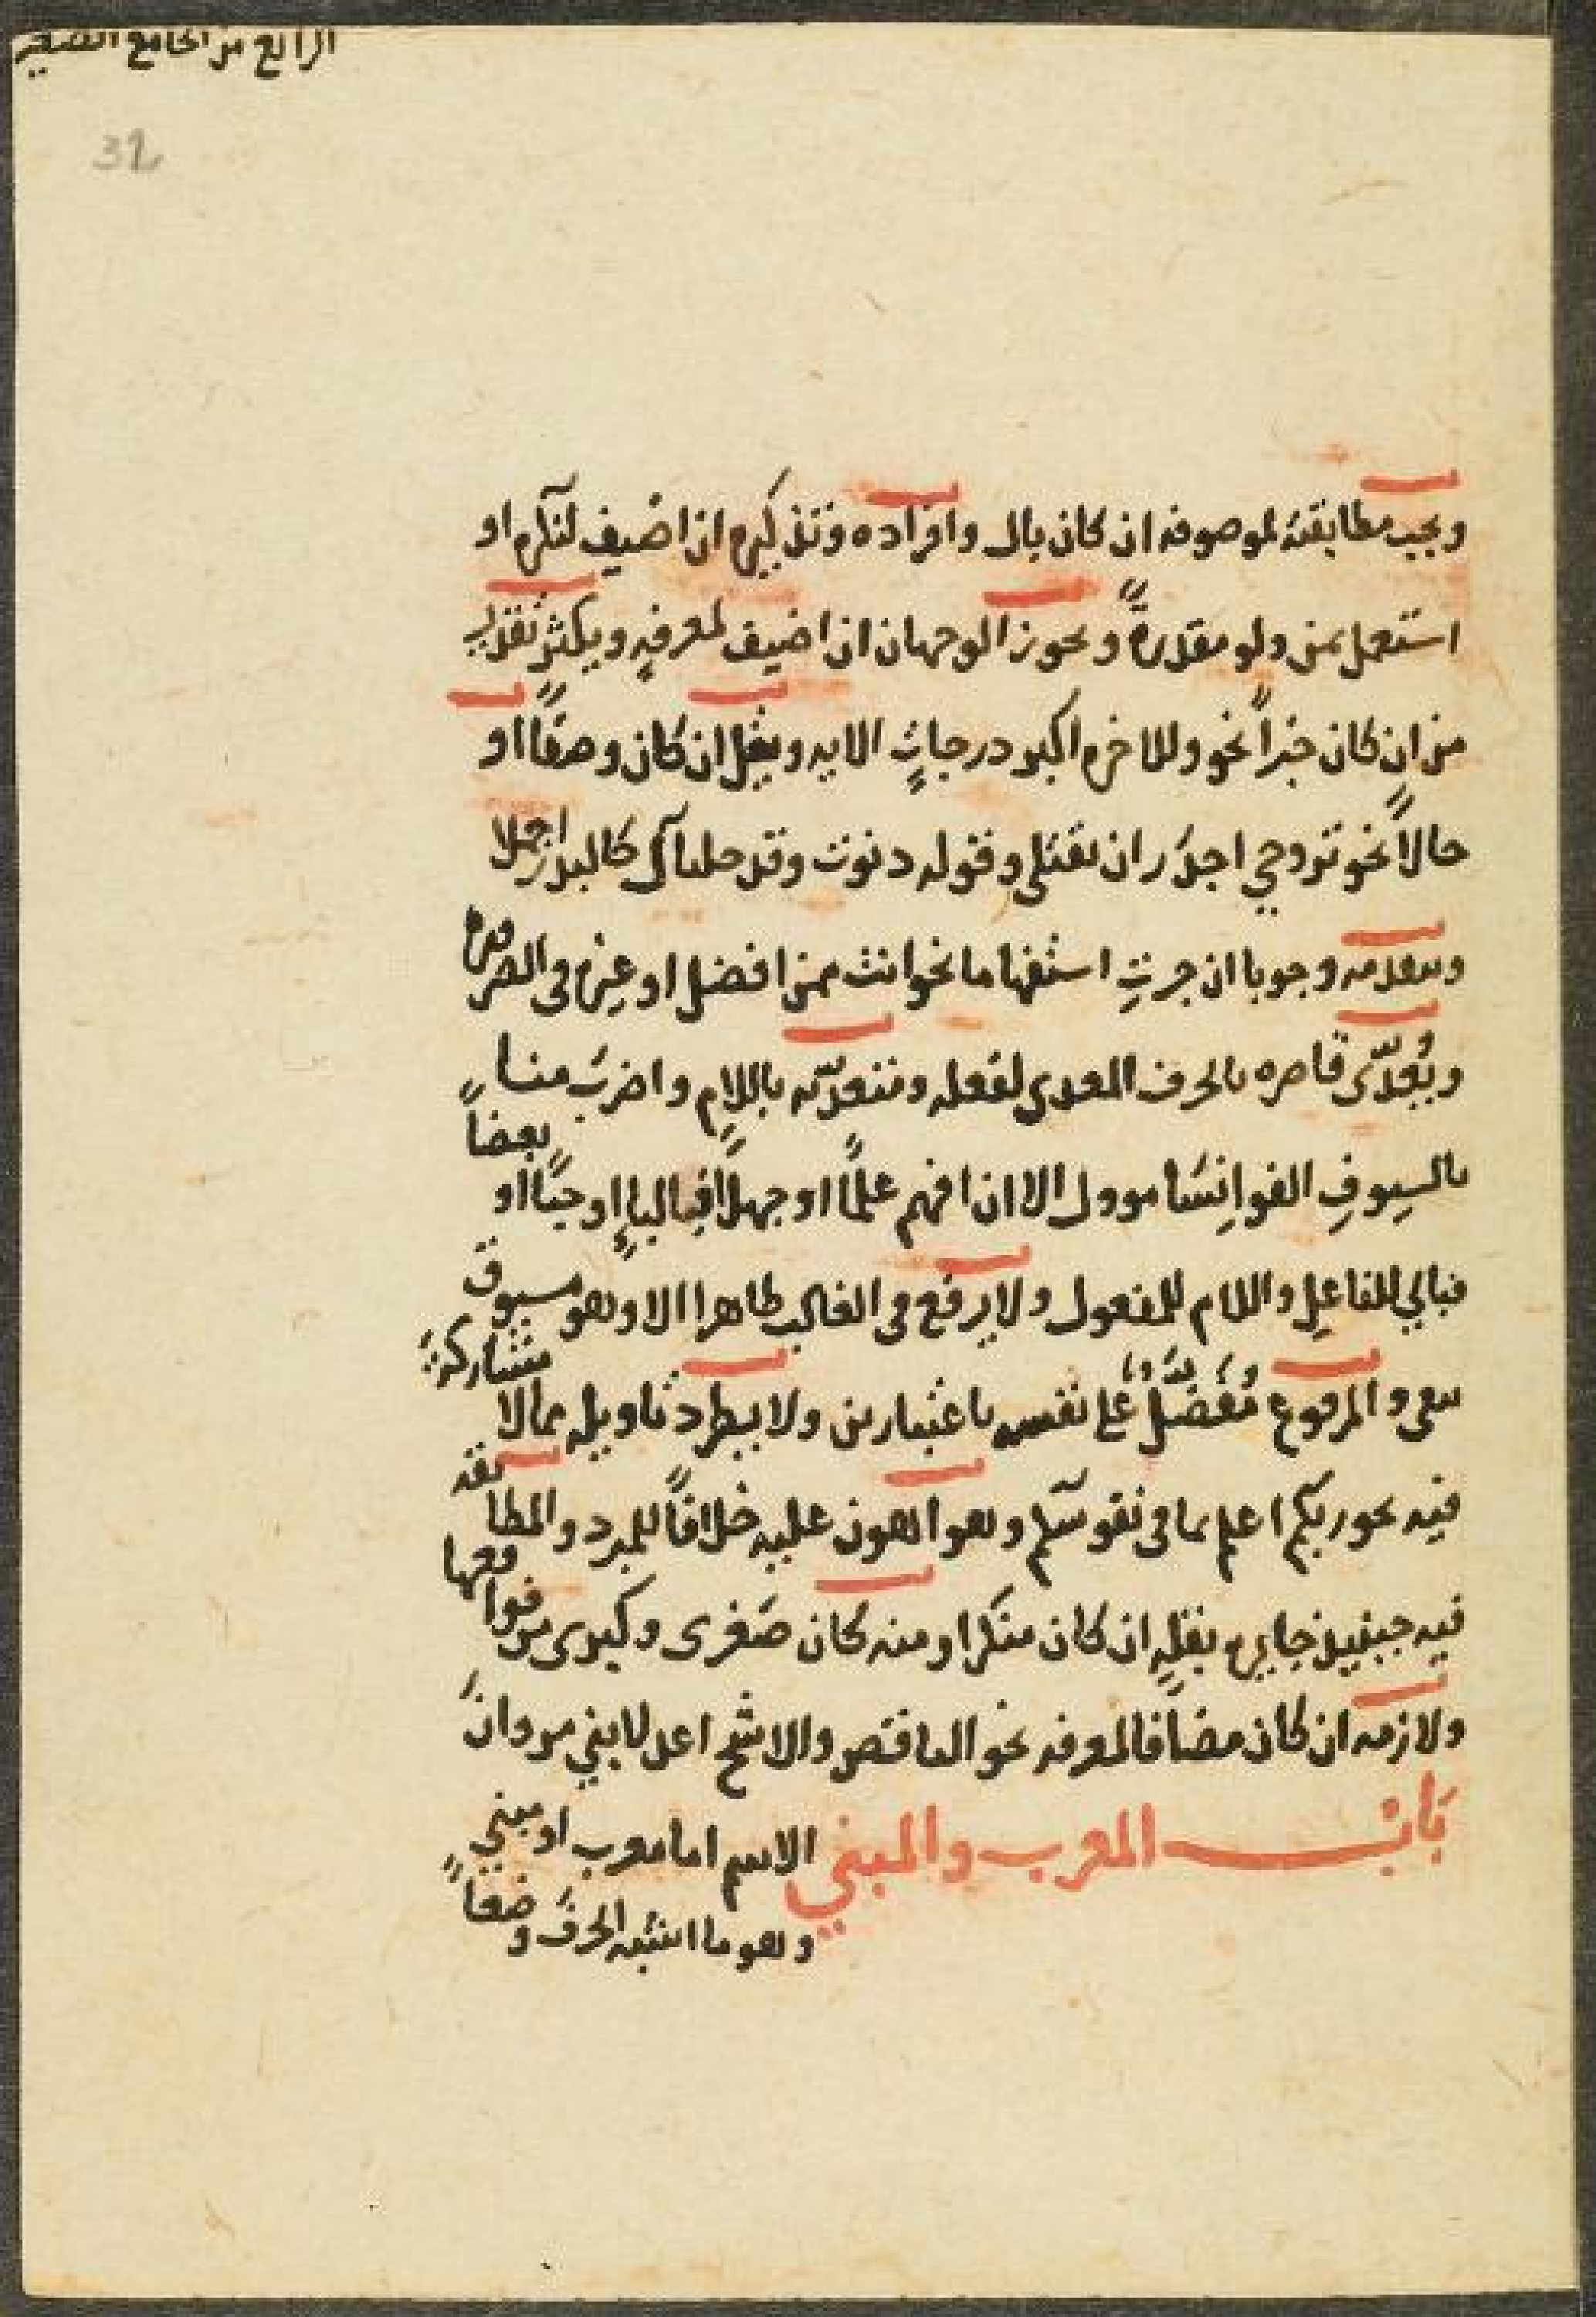 الرابع من الجامع الصغير
32
ويجب مطابقته لموصوفه ان كان بال وافراده وتذكيره ان اضيف لنكره او
استعمل بمن ولو مقدرةً ويجوز الوجهان ان اضيف لمعرفةٍ ويكثر تقدير
من ان كان خبراً نحو وللاخره اكبر درجاتٍ الايه ويقل ان كان وصفًا او
حالاً نحو تروحي اجدر ان تقيلي وقوله دنوت وقد خلناك كالبدر اجملا
وتقدمه وجوبا ان جرت استفهاما نحو انت ممن افضل او غيره في الضروره
ويُعدّى قاصره بالحرف المعدى لفعله ومتعدّيه باللام واضرب منا
بالسيوفِ القوانِسَا موول الا ان افهم علمًا او جهلاً فبالباءِ او حبًا او بعضاً
فبالي للفاعل واللام للمفعول ولا يرفع في الغالب ظاهرا الا وهو مسبوق
بنفي والمرفوع مُفَضَّلٌ على نفسه باعتبارين ولا يطرد تاويله بمالا مشاركةَ
فيه نحو ربكم اعلم بما في نفوسكم وهو اهون عليه خلافًا للمبرد والمطابقه
فيه حينيذ جايزه بقلهٍ ان كان منكرا ومنه كان صَغرى وكبرى من فواقعها
ولازمه ان كان مضافا لمعرفه نحو الناقص والاشج اعدلا بني مروانَ
بَابُ المعرب والمبني الاسم اما معرب او مبني
وهو ما اشبه الحرفَ وضعاً و